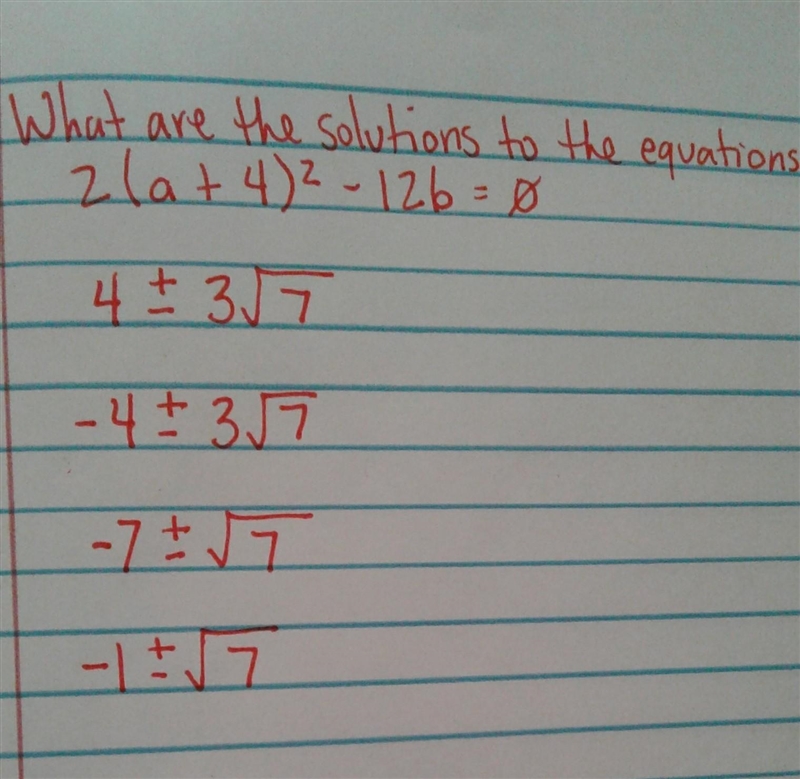 What are the solutions to the equations
2(a + 4)² - 126 = 0
4 ± 3√7
-4 ± 3√7
-7 ± √7
-1 ± √7